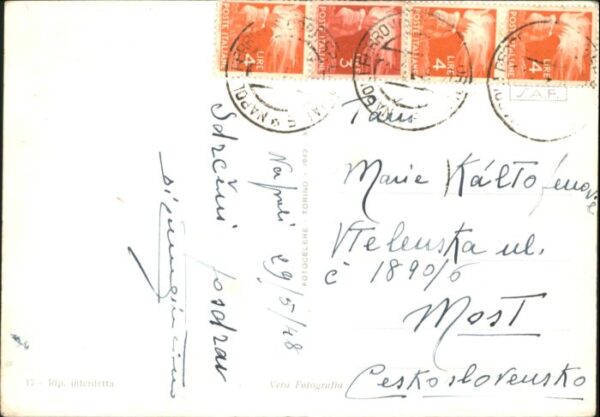 POSTE ITALIANE LIRE 4
LIRE 3
POSTE ITALIANE LIRE 4
POSTE ITALIANE LIRE 4
NAPOLI FERROVIA
S.A.F.
Napoli 29/5/48
Srdečni pozdrav
Marie
Vtelenska ul.
č 1890/6
Most
Československo
FOTOCELERE - TORINO
17 - Rip. interdetta
Vera Fotografia